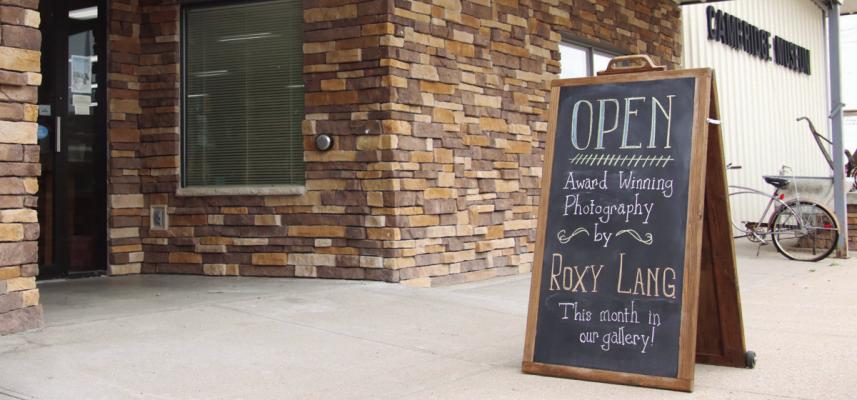 CAMBRIDGE MUSEUM
OPEN
Award Winning
Photography
by
ROXY LANG
This month in
our gallery!